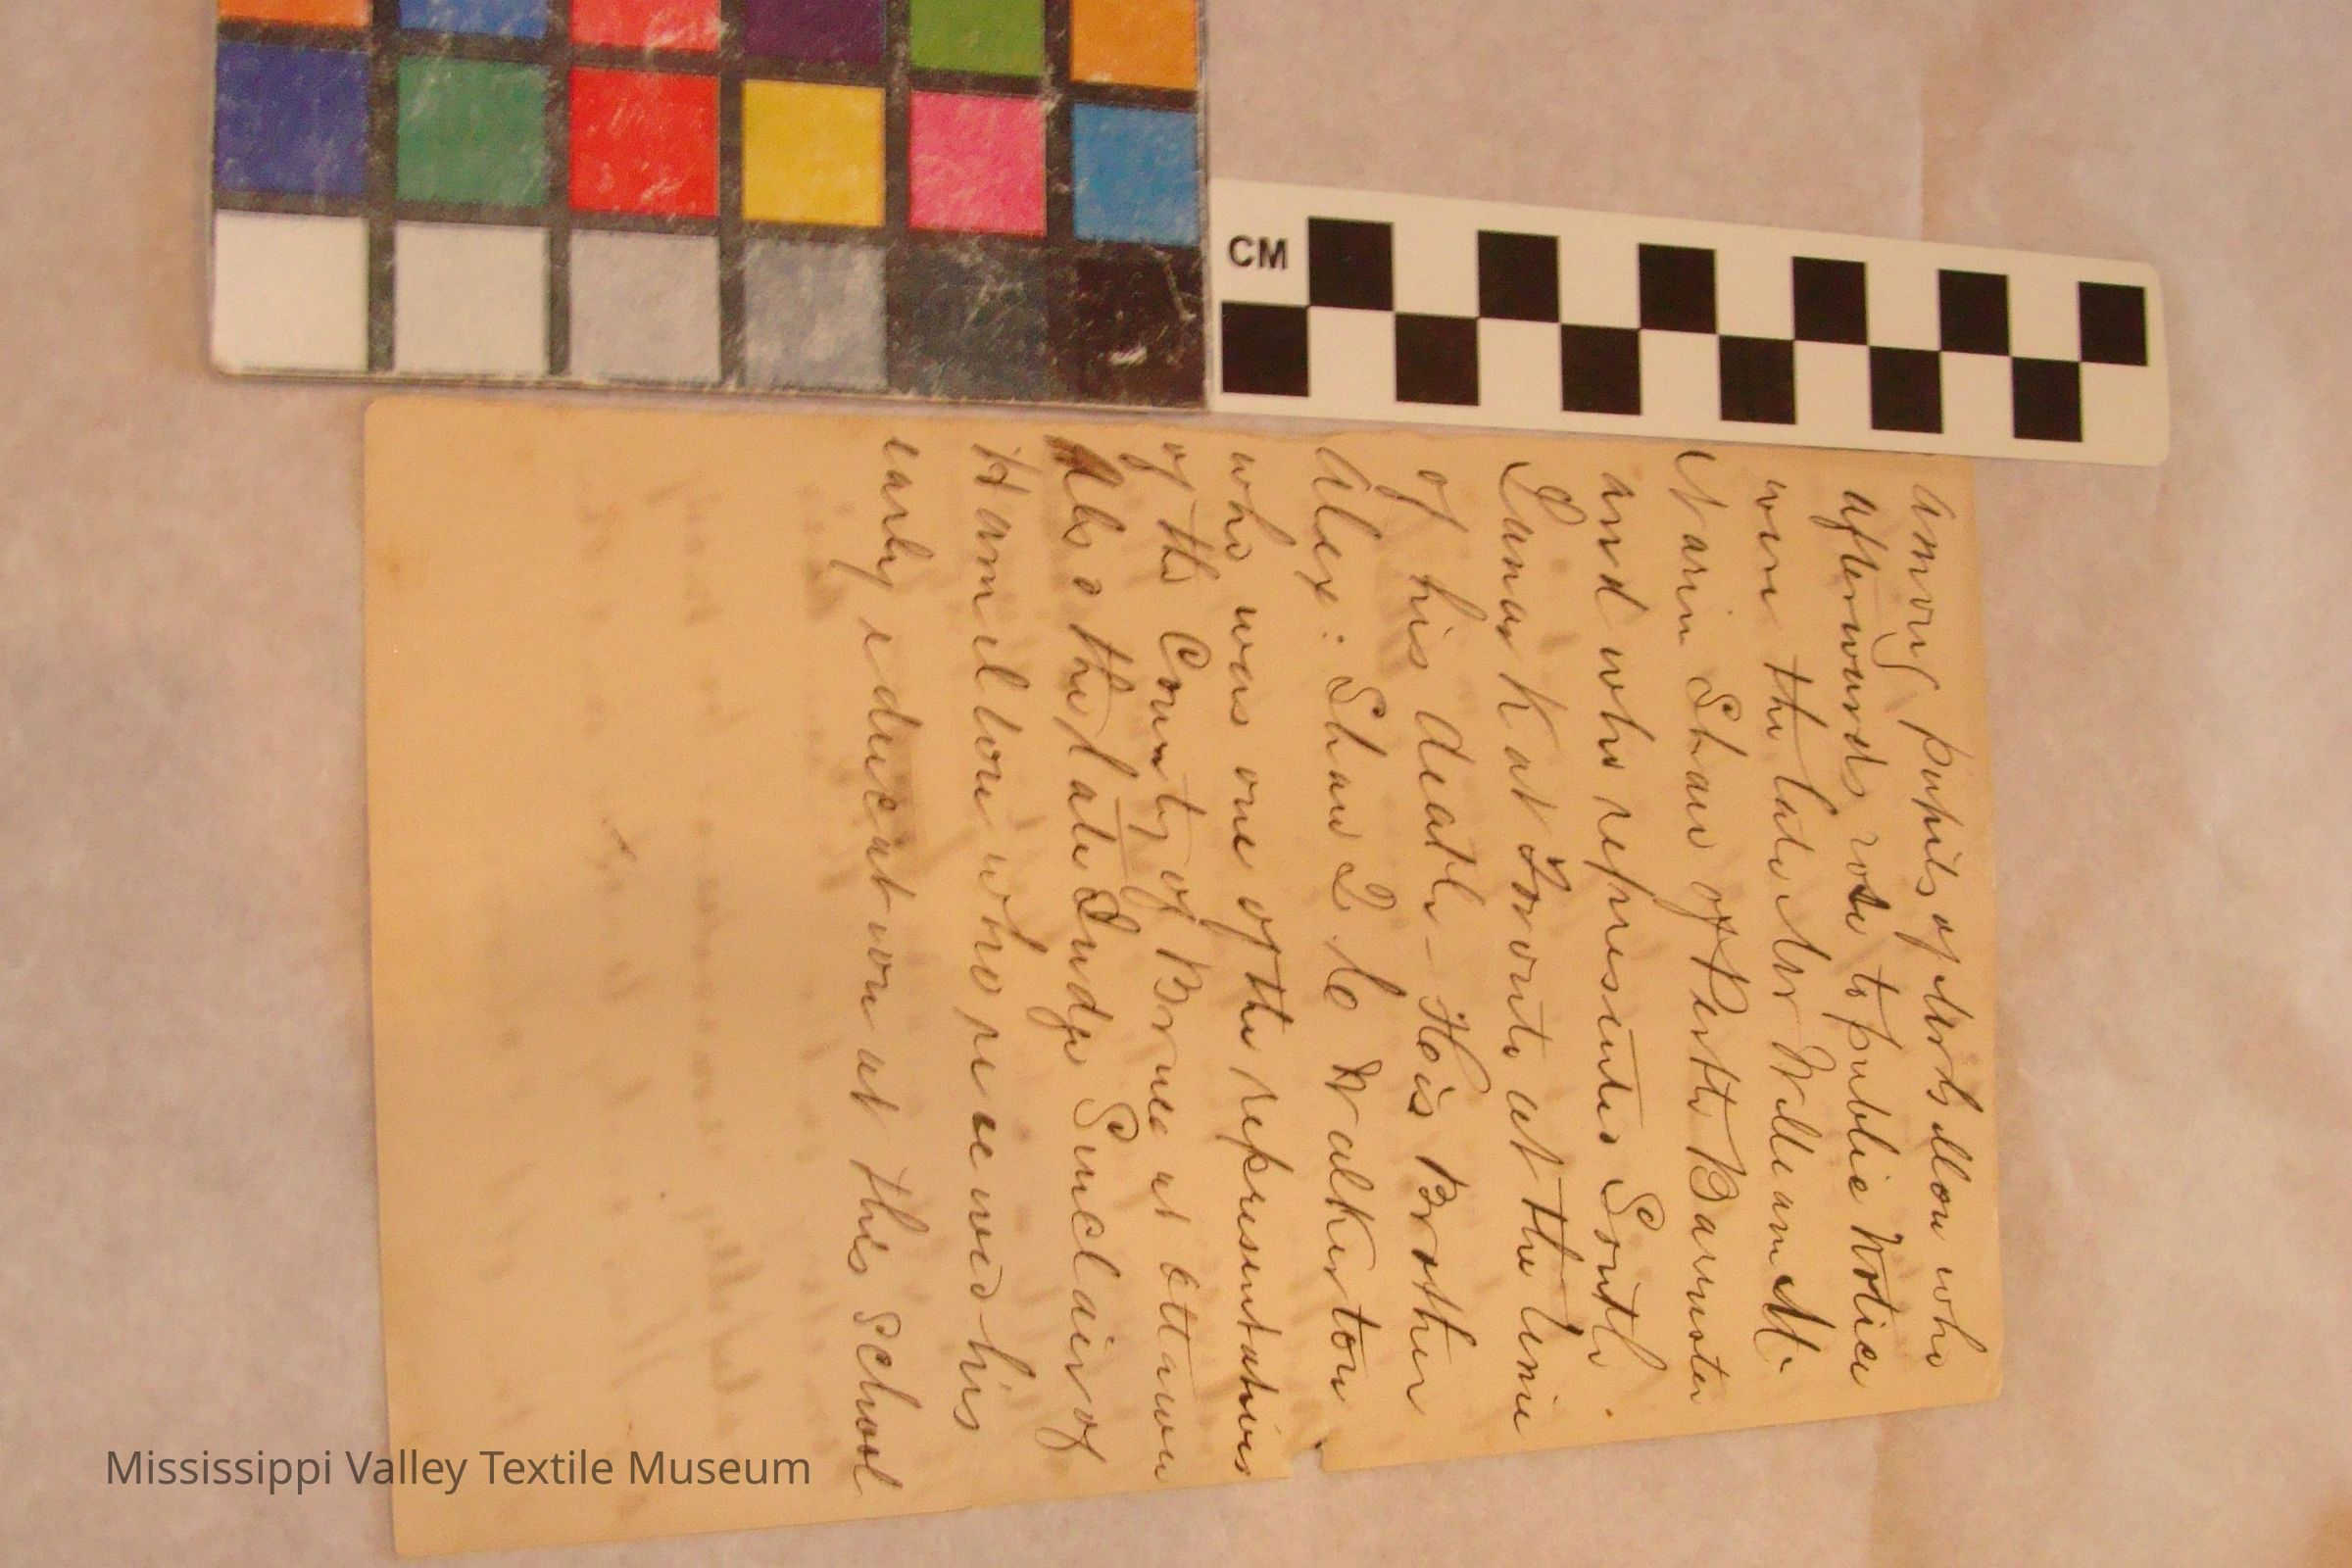 CM
Among pupils of Mr Mallow who
afterwards rose to public Notice
were the late Mr William M.
Narin Shaw of Perth Barrister
and who represented South
Lanark at Toronto at the time
of his death - His Brother
Alex: Shaw Q C Walkerton
who was one of the representatives
of the County of Bruce at Ottawa
Also the late Judge Sinclair of
Hamilton who received his
early education at this School
Mississippi Valley Textile Museum